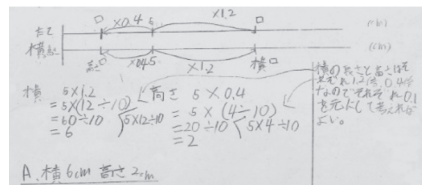 ×0.4 5 ×1.2 □
(cm)
(cm)
×0.4 5 ×1.2 横□
横 5×1.2
=5×(12÷10)
=60÷10
=6
5×12÷10
高さ 5×0.4
=5×(4÷10)
=20÷10
=2
5×4÷10
横の長さと高さはそ
れぞれ1.2倍、0.4倍
なのでそれぞれ0.1
を元にして考えれば
よい。
A. 横6cm 高さ2cm